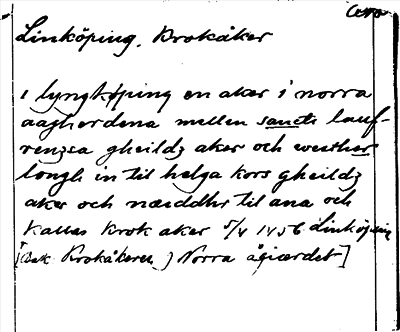 Linköping, Brokåker
i lyngköping en aker i norra
aagherdena mellen sancte lauf-
renzsa gheildz aker och westher
longh in til helga kors gheildz
aker och næiddhr til ana och
kallas krok aker 5/4 1456 Linköping
[Dsk Krokåkeren) Norra ågiærdet]